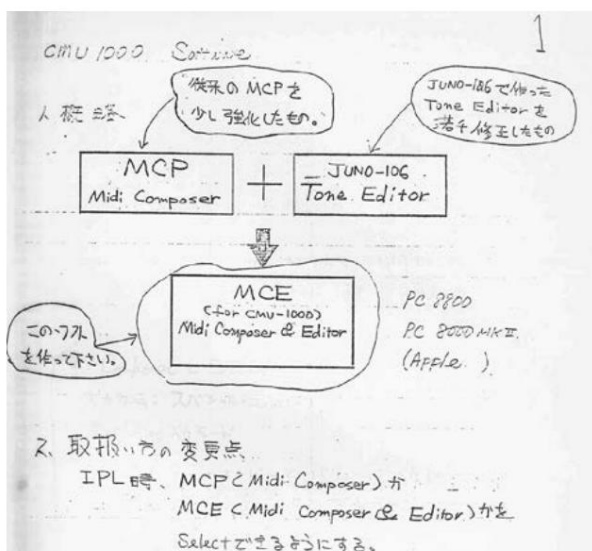 1
CMU 1000 Software
1. 概略
従来の MCP を
少し強化したもの。
JUNO-106で作った
Tone Editor を
若干修正したもの
MCP
Midi Composer
+
JUNO-106
Tone Editor
MCE
(for CMU-1000)
Midi Composer & Editor
このソフト
を作って下さい。
PC 8800
PC 8000 MKⅡ
(Apple )
2. 取扱い方の変更点
IPL時、MCP (Midi Composer) か
MCE (Midi Composer & Editor) かを
Selectできるようにする。